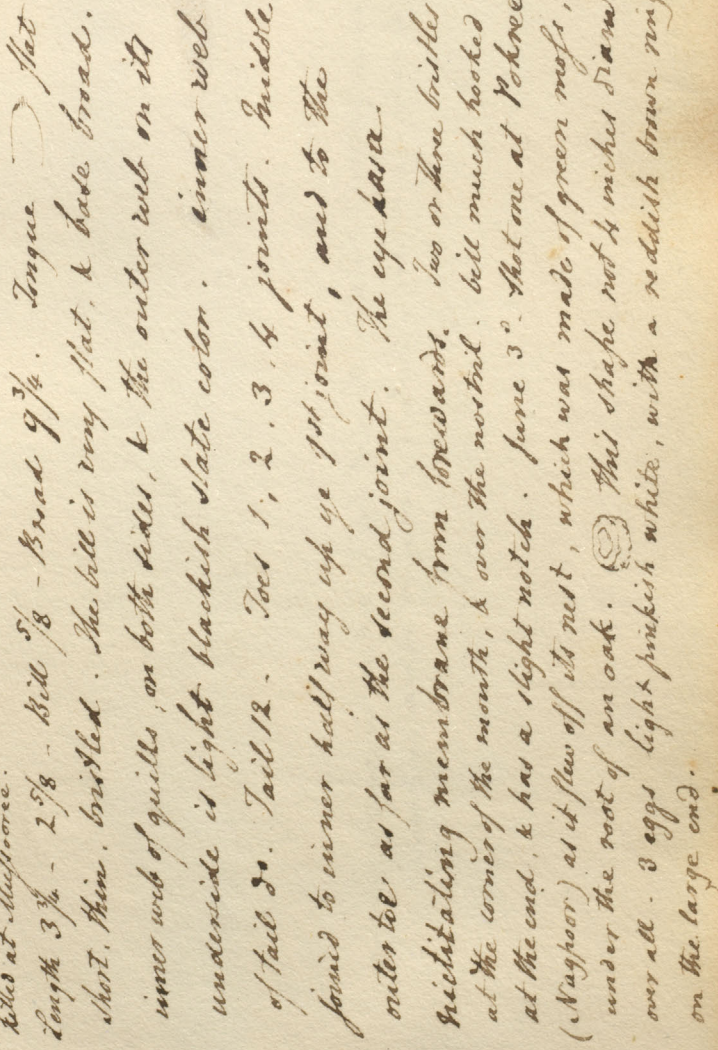 killed at Mussooree.
Length 3 3/4 - 2 5/8 - Bill 5/8 - Broad 9 3/4. Tongue flat
short. thin. bristled. The bill is very flat, & base broad.
inner web of quills, on both sides, & the outer web on its
underside is light blackish slate color. inner web
of tail do. Tail 12 - Toes 1, 2. 3. 4 joints. Middle
joined to inner half way up ye 1st joint, and to the
outer toe as far as the second joint. The eye has a
nictitating membrane from forewards. Two or three bristles
at the corner of the mouth, & over the nostril. bill much hooked
at the end, & has a slight notch. June 3d. Shot one at Pokree
(Nagpoor) as it flew off its nest, which was made of green moss,
under the root of an oak. This shape not 4 inches diam
over all. 3 eggs light pinkish white, with a reddish brown ring
on the large end.